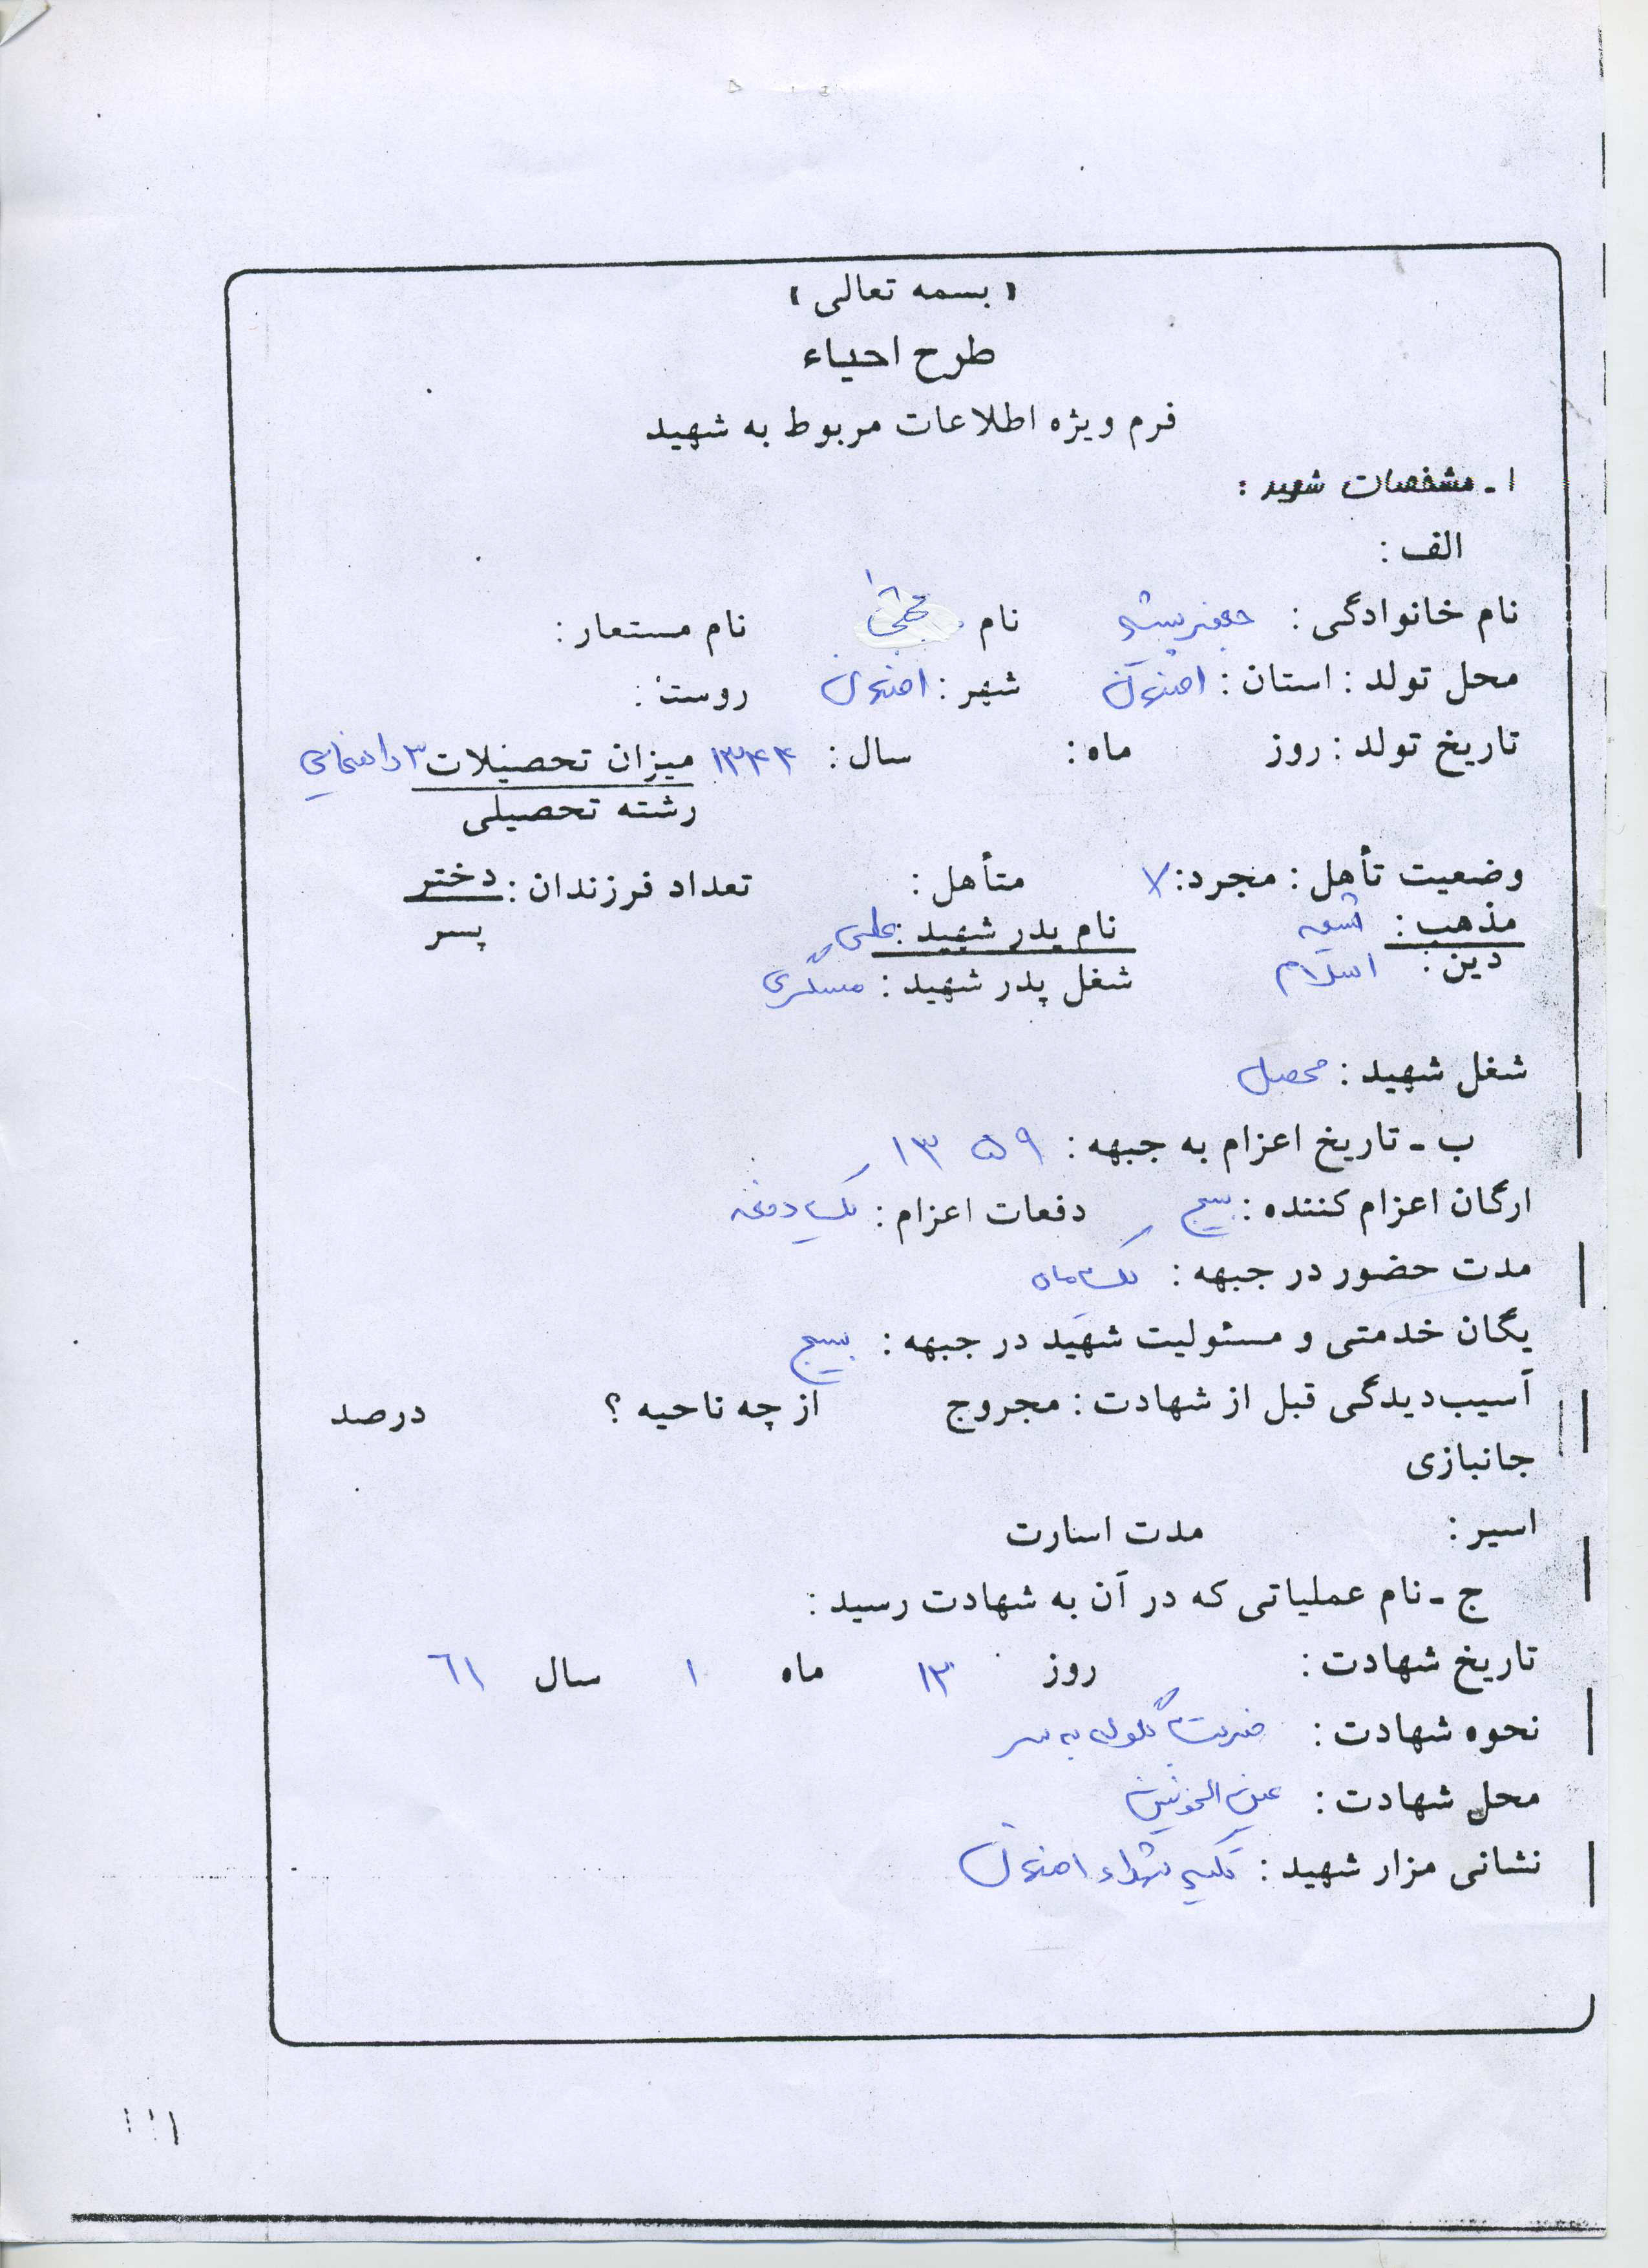 « بسمه تعالی »
طرح احیاء
فرم ویژه اطلاعات مربوط به شهید
۱ـ مشخصات شهید :
الف :
نام خانوادگی : جعفرپیشه نام نام مستعار :
محل تولد : استان : اصفهان شهر : اصفهان روستا :
تاریخ تولد : روز ماه : سال : ۱۳۴۴ میزان تحصیلات ۳ راهنمایی
رشته تحصیلی
وضعیت تأهل : مجرد : × متأهل : تعداد فرزندان : دختر
پسر
مذهب : شیعه نام پدر شهید : علی
دین : اسلام شغل پدر شهید : مسگری
شغل شهید : محصل
ب ـ تاریخ اعزام به جبهه : ۱۳۵۹
ارگان اعزام کننده : بسیج دفعات اعزام : یک دفعه
مدت حضور در جبهه : یک ماه
یگان خدمتی و مسئولیت شهید در جبهه : بسیج
آسیب‌دیدگی قبل از شهادت : مجروح از چه ناحیه ؟ درصد
جانبازی
اسیر : مدت اسارت
ج ـ نام عملیاتی که در آن به شهادت رسید :
تاریخ شهادت : روز ۱۳ ماه ۱ سال ۶۱
نحوه شهادت : ضربت گلوله به سر
محل شهادت : عین الخوش
نشانی مزار شهید : تکیه شهداء اصفهان